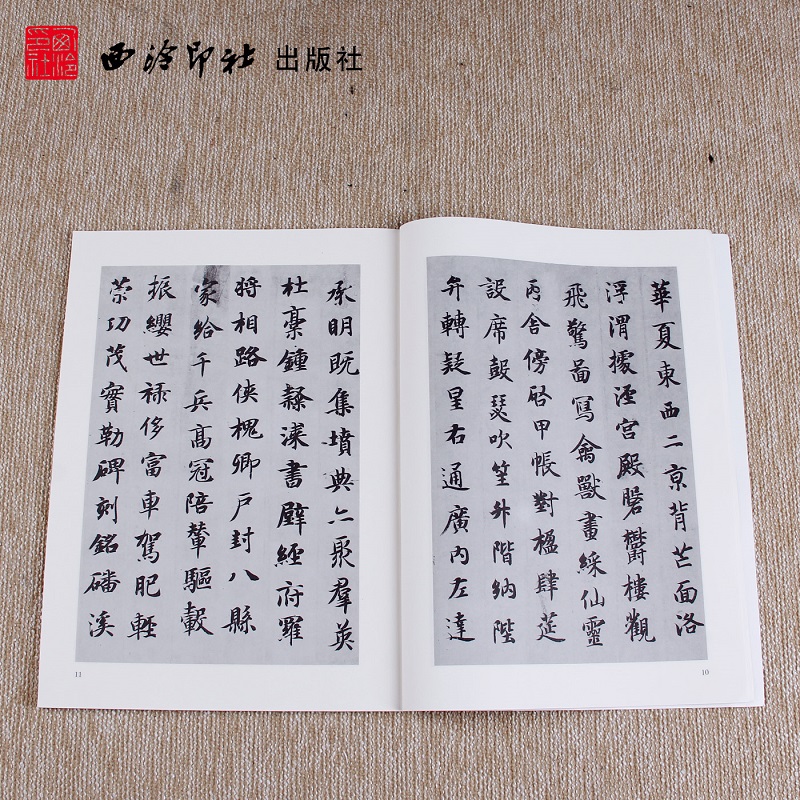 西泠印社
西泠印社 出版社
華夏東西二京背芒面洛
浮渭據涇宮殿盤鬱樓觀
飛驚啚寫禽獸畫綵仙靈
丙舍傍啓甲帳對楹肆莚
設席鼓瑟吹笙升階納陛
弁轉疑星右通廣內左達
10
承明既集墳典亦聚群英
杜稾鍾隸漆書壁經府羅
將相路俠槐卿戶封八縣
家給千兵高冠陪輦驅轂
振纓世祿侈富車駕肥輕
策功茂實勒碑刻銘磻溪
11